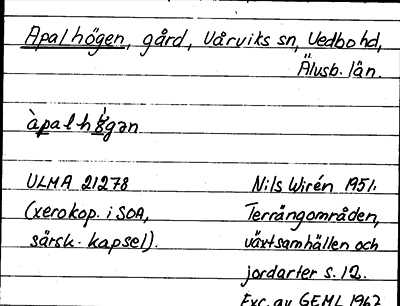 Apalhögen, gård, Vårviks sn, Vedbo hd,
Älvsb. län.
àpalhǿgən
ULMA 21278
(xerokop. i SOA,
särsk. kapsel).
Nils Wirén 1951.
Terrängområden,
växtsamhällen och
jordarter s. 12.
Exc. av GEML 1967